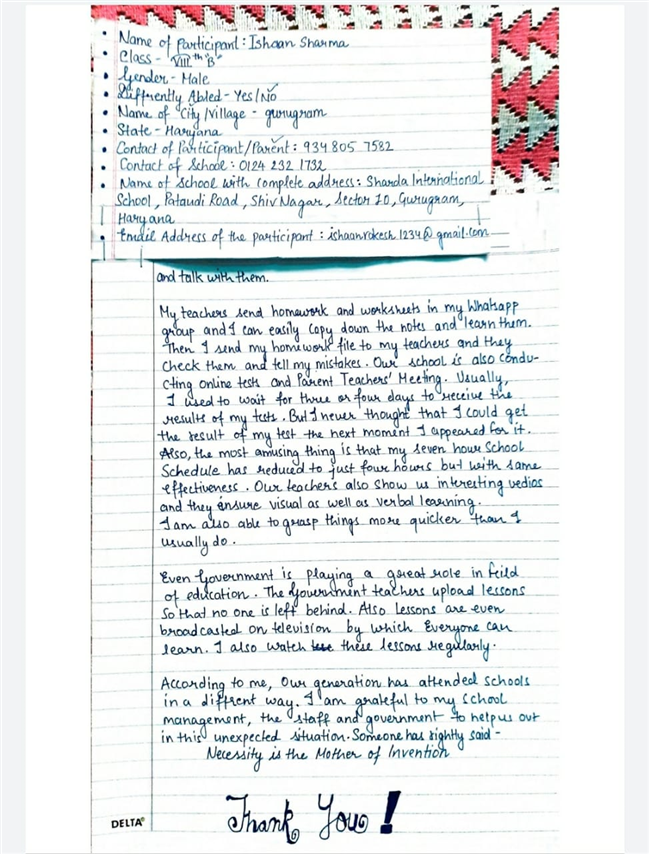 Name of Participant : Ishaan Sharma
Class - VIII th "B"
Gender - Male
Differently Abled - Yes/No
Name of City/Village - gurugram
State - Haryana
Contact of Participant/Parent : 934 805 7582
Contact of School : 0124 232 1732
Name of School with complete address : Sharda International
School, Pataudi Road, Shiv Nagar, Sector 10, Gurugram,
Haryana
Email Address of the participant : ishaanrakesh1234@gmail.com
and talk with them.
My teachers send homework and worksheets in my Whatsapp
group and I can easily copy down the notes and learn them.
Then I send my homework file to my teachers and they
check them and tell my mistakes. Our school is also condu-
cting online tests and Parent Teachers' Meeting. Usually,
I used to wait for three or four days to receive the
results of my tests. But I never thought that I could get
the result of my test the next moment I appeared for it.
Also, the most amusing thing is that my seven hour School
Schedule has reduced to just four hours but with same
effectiveness. Our teachers also show us interesting vedios
and they ensure visual as well as verbal learning.
I am also able to grasp things more quicker than I
usually do.
Even Government is playing a great role in feild
of education. The Government teachers upload lessons
So that no one is left behind. Also Lessons are even
broadcasted on television by which Everyone can
learn. I also watch these lessons regularly.
According to me, Our generation has attended schools
in a diffrent way. I am grateful to my school
management, the staff and government to help us out
in this unexpected situation. Someone has rightly said -
Necessity is the Mother of Invention
Thank You!
DELTA